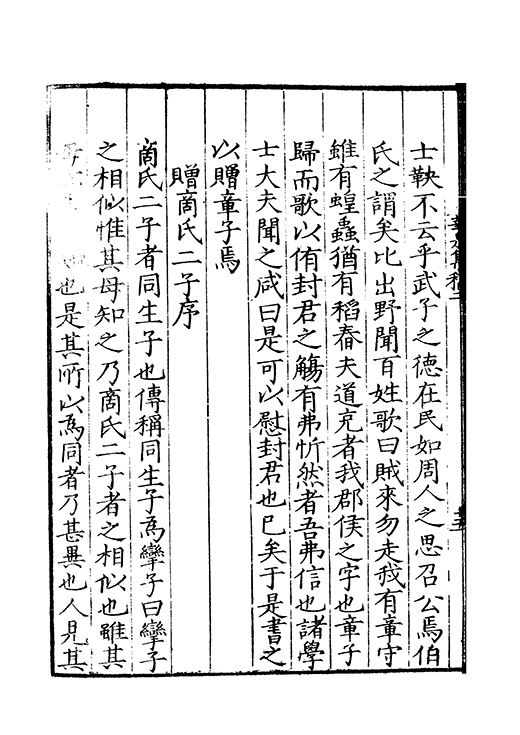 士鞅不云乎武子之德在民如周人之思召公焉伯
氏之謂矣比出野聞百姓歌曰賊來勿走我有童守
雖有蝗蟲猶有稻舂夫道充者我郡侯之字也童子
歸而歌以侑封君之觴有弗忻然者吾弗信也諸學
士大夫聞之咸曰是可以慰封君也已矣于是書之
以贈童子焉
贈商氏二子序
商氏二子者同生子也傳稱同生子為孿子曰孿子
之相似惟其母知之乃商氏二子者之相似也雖其
也是其所以為同者乃甚異也人見其